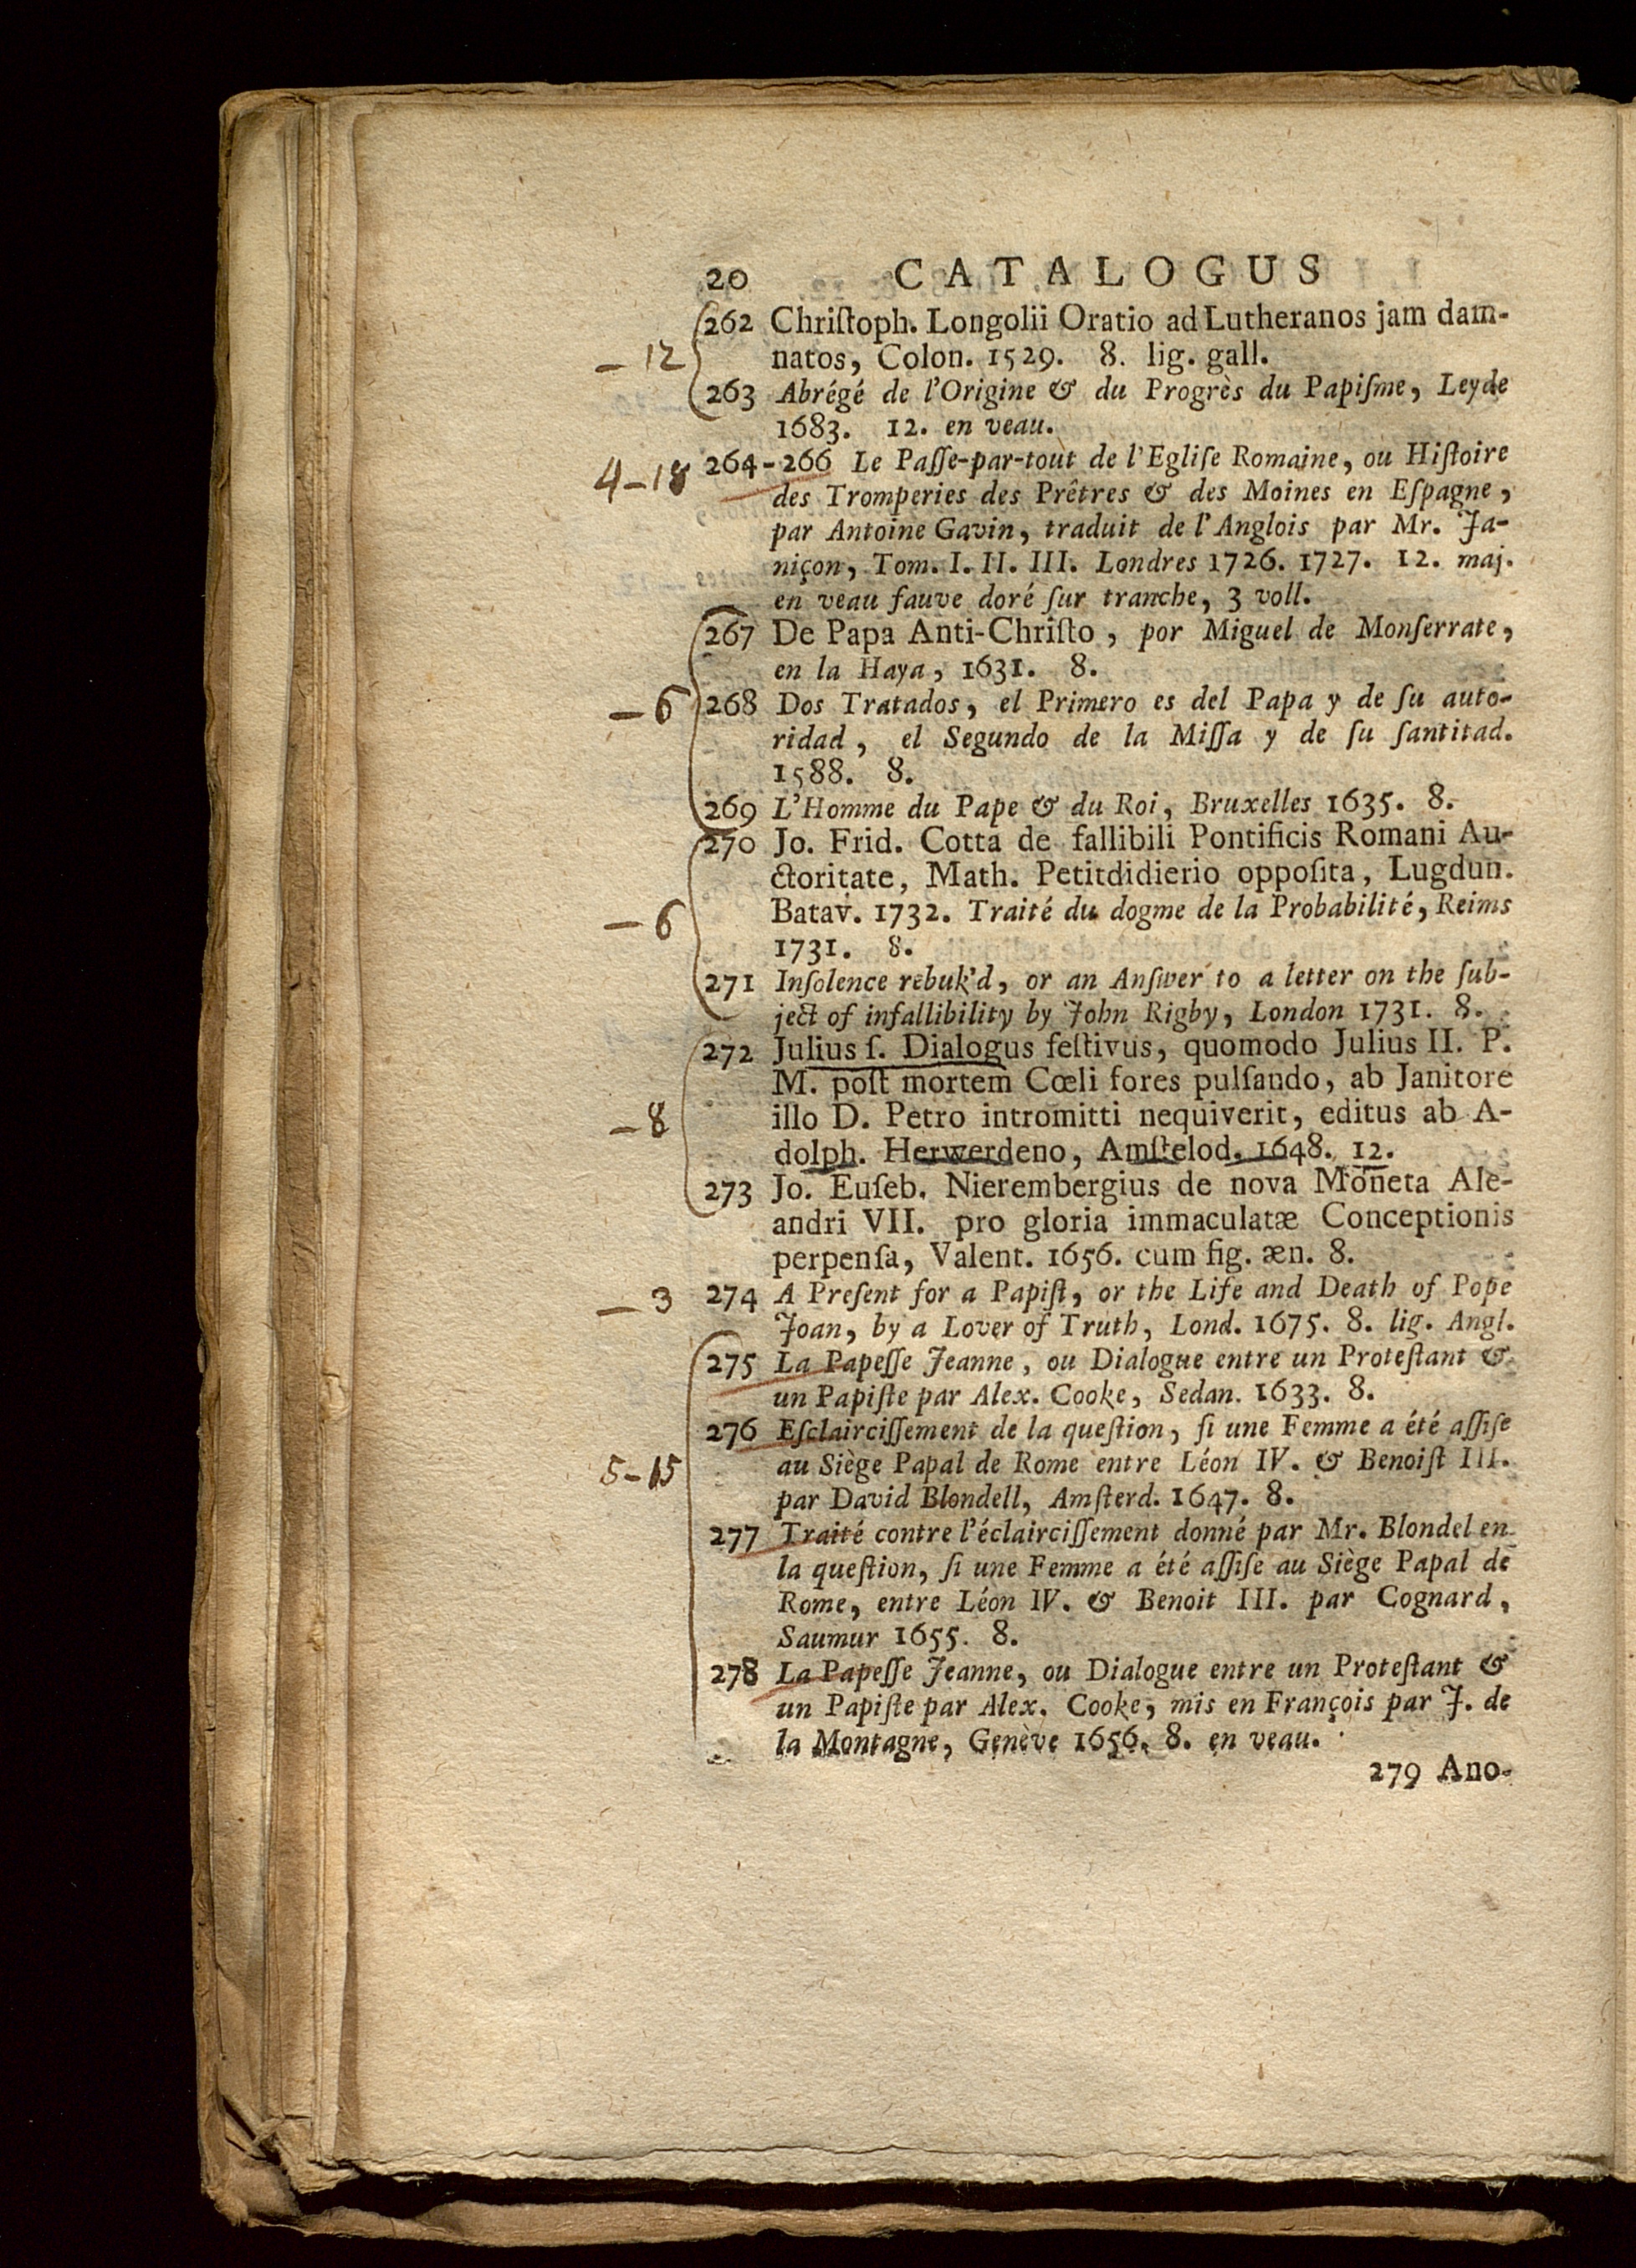 20 CATALOGUS
262 Chriſtoph. Longolii Oratio ad Lutheranos jam dam-
— 12 natos, Colon. 1529. 8. lig. gall.
263 Abrégé de l'Origine & du Progrès du Papiſme, Leyde
1683. 12. en veau.
4-18 264-266 Le Paſſe-par-tout de l'Egliſe Romaine, ou Hiſtoire
des Tromperies des Prêtres & des Moines en Eſpagne,
par Antoine Gavin, traduit de l'Anglois par Mr. Ja-
niçon, Tom. I. II. III. Londres 1726. 1727. 12. maj.
en veau fauve doré ſur tranche, 3 voll.
267 De Papa Anti-Chriſto, por Miguel de Monſerrate,
en la Haya, 1631. 8.
— 6 268 Dos Tratados, el Primero es del Papa y de ſu auto-
ridad, el Segundo de la Miſſa y de ſu ſantitad.
1588. 8.
269 L'Homme du Pape & du Roi, Bruxelles 1635. 8.
270 Jo. Frid. Cotta de fallibili Pontificis Romani Au-
ctoritate, Math. Petitdidierio oppoſita, Lugdun.
— 6 Batav. 1732. Traité du dogme de la Probabilité, Reims
1731. 8.
271 Inſolence rebuk'd, or an Anſwer to a letter on the ſub-
ject of infallibility by John Rigby, London 1731. 8.
272 Julius ſ. Dialogus feſtivus, quomodo Julius II. P.
M. poſt mortem Cœli fores pulſando, ab Janitore
— 8 illo D. Petro intromitti nequiverit, editus ab A-
dolph. Herwerdeno, Amſtelod. 1648. 12.
273 Jo. Euſeb. Nierembergius de nova Moneta Ale-
andri VII. pro gloria immaculatæ Conceptionis
perpenſa, Valent. 1656. cum fig. æn. 8.
— 3 274 A Preſent for a Papiſt, or the Life and Death of Pope
Joan, by a Lover of Truth, Lond. 1675. 8. lig. Angl.
275 La Papeſſe Jeanne, ou Dialogue entre un Proteſtant &
un Papiſte par Alex. Cooke, Sedan. 1633. 8.
276 Eſclairciſſement de la queſtion, ſi une Femme a été aſſiſe
5-15 au Siège Papal de Rome entre Léon IV. & Benoiſt III.
par David Blondell, Amſterd. 1647. 8.
277 Traité contre l'éclairciſſement donné par Mr. Blondel en
la queſtion, ſi une Femme a été aſſiſe au Siège Papal de
Rome, entre Léon IV. & Benoit III. par Cognard,
Saumur 1655. 8.
278 La Papeſſe Jeanne, ou Dialogue entre un Proteſtant &
un Papiſte par Alex. Cooke, mis en François par J. de
la Montagne, Genève 1656. 8. en veau.
279 Ano-